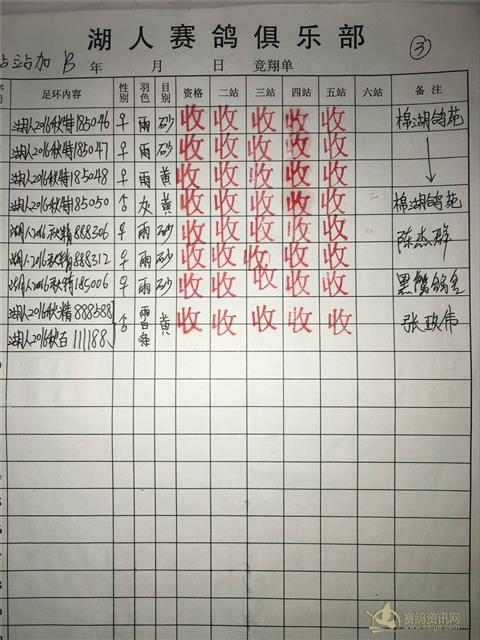 湖人赛鸽俱乐部
③
站加 B 年 月 日 竞翔单
号 足环内容 性别 羽色 目别 资格 二站 三站 四站 五站 六站 备注
湖人2016秋特185046 ♀ 雨 砂 收 收 收 收 收 棉湖鸽苑
湖人2016秋特185047 ♀ 雨 砂 收 收 收 收 收
湖人2016秋特185048 ♀ 雨 黄 收 收 收 收 收
湖人2016秋特185050 灰 黄 收 收 收 收 收 棉湖鸽苑
湖人2016秋精888306 ♀ 雨 砂 收 收 收 收 收 陈杰群
湖人2016秋精888312 ♀ 雨 砂 收 收 收 收 收
湖人2016秋特185006 ♀ 雨 砂 收 收 收 收 收
湖人2016秋精888588 雨白条 黄 收 收 收 收 收 张政伟
湖人2016秋百111188
赛鸽资讯网
www.saige.com